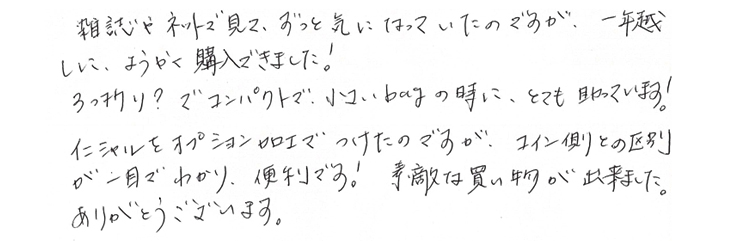 雑誌やネットで見て、ずっと気になっていたのですが、一年越
しに、ようやく購入できました!
3つ折り?でコンパクトで、小さいbagの時に、とても助っています!
イニシャルをオプション加工でつけたのですが、コイン側との区別
が一目でわかり、便利です!素敵な買い物が出来ました。
ありがとうございます。